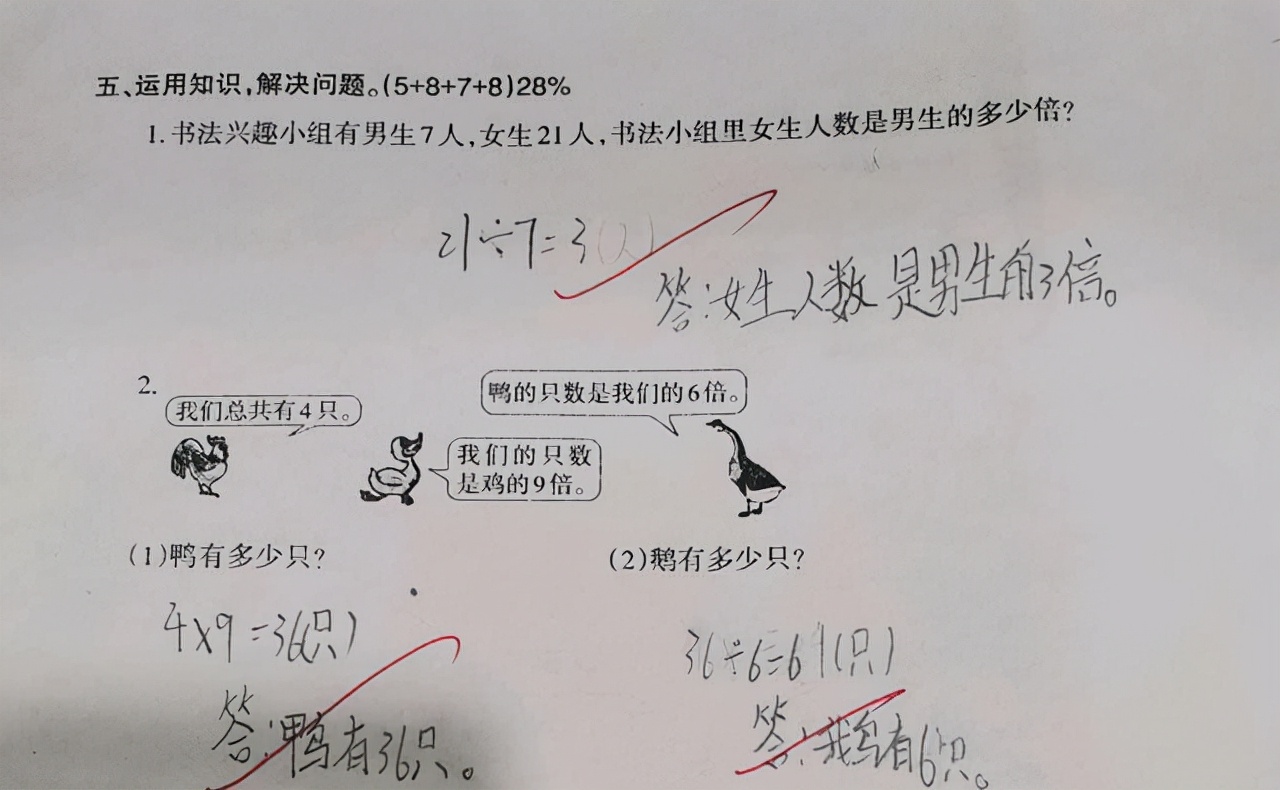 五、运用知识,解决问题。(5+8+7+8)28%
1.书法兴趣小组有男生7人,女生21人,书法小组里女生人数是男生的多少倍?
21÷7=3
答:女生人数是男生的3倍。
2.
我们总共有4只。
鸭的只数是我们的6倍。
我们的只数
是鸡的9倍。
(1)鸭有多少只?
(2)鹅有多少只?
4×9=36(只)
36÷6=6(只)
答:鸭有36只。
答:鹅有6只。